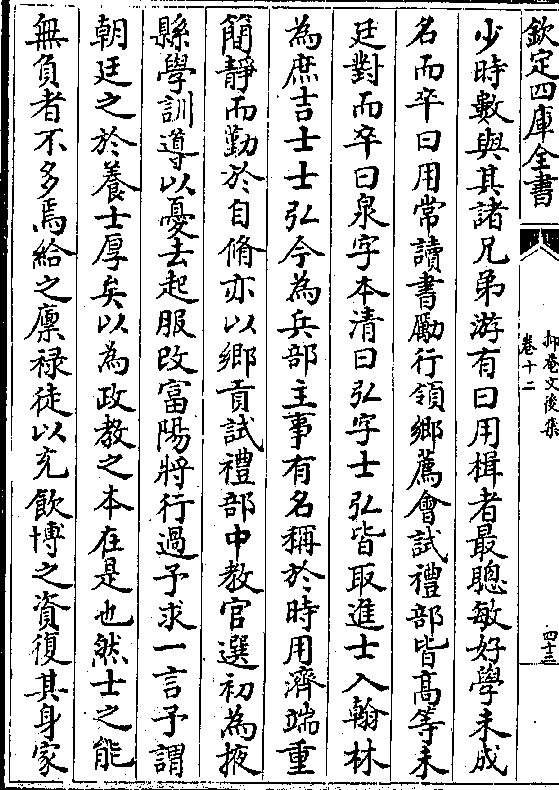 欽定四庫全書
抑菴文後集
卷十二
四十三
少時數與其諸兄弟游有曰用楫者最聰敏好學未成
名而卒曰用常讀書勵行領鄉薦會試禮部皆高等未
廷對而卒曰泉字本清曰弘字士弘皆取進士入翰林
為庶吉士士弘今為兵部主事有名稱於時用濟端重
簡靜而勤於自脩亦以鄉貢試禮部中教官選初為掖
縣學訓導以憂去起服改富陽將行過予求一言予謂
朝廷之於養士厚矣以為政教之本在是也然士之能
無負者不多焉給之廪禄徒以充飲博之資復其身家